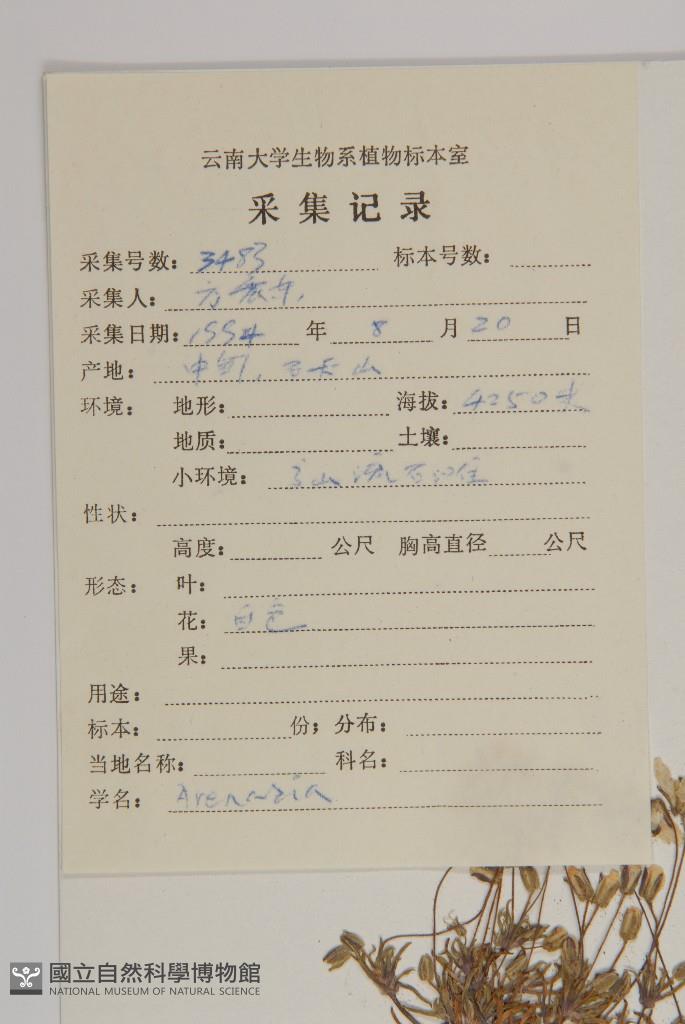 云南大学生物系植物标本室
采集记录
采集号数： 3483 标本号数：
采集人： 方震东
采集日期： 1994 年 8 月 20 日
产地： 中甸，山
环境： 地形： 海拔： 4250米
地质： 土壤：
小环境： 高山流石
性状：
高度： 公尺 胸高直径 公尺
形态： 叶：
花： 白色
果：
用途：
标本： 份；分布：
当地名称： 科名：
学名： Arenaria
國立自然科學博物館
NATIONAL MUSEUM OF NATURAL SCIENCE